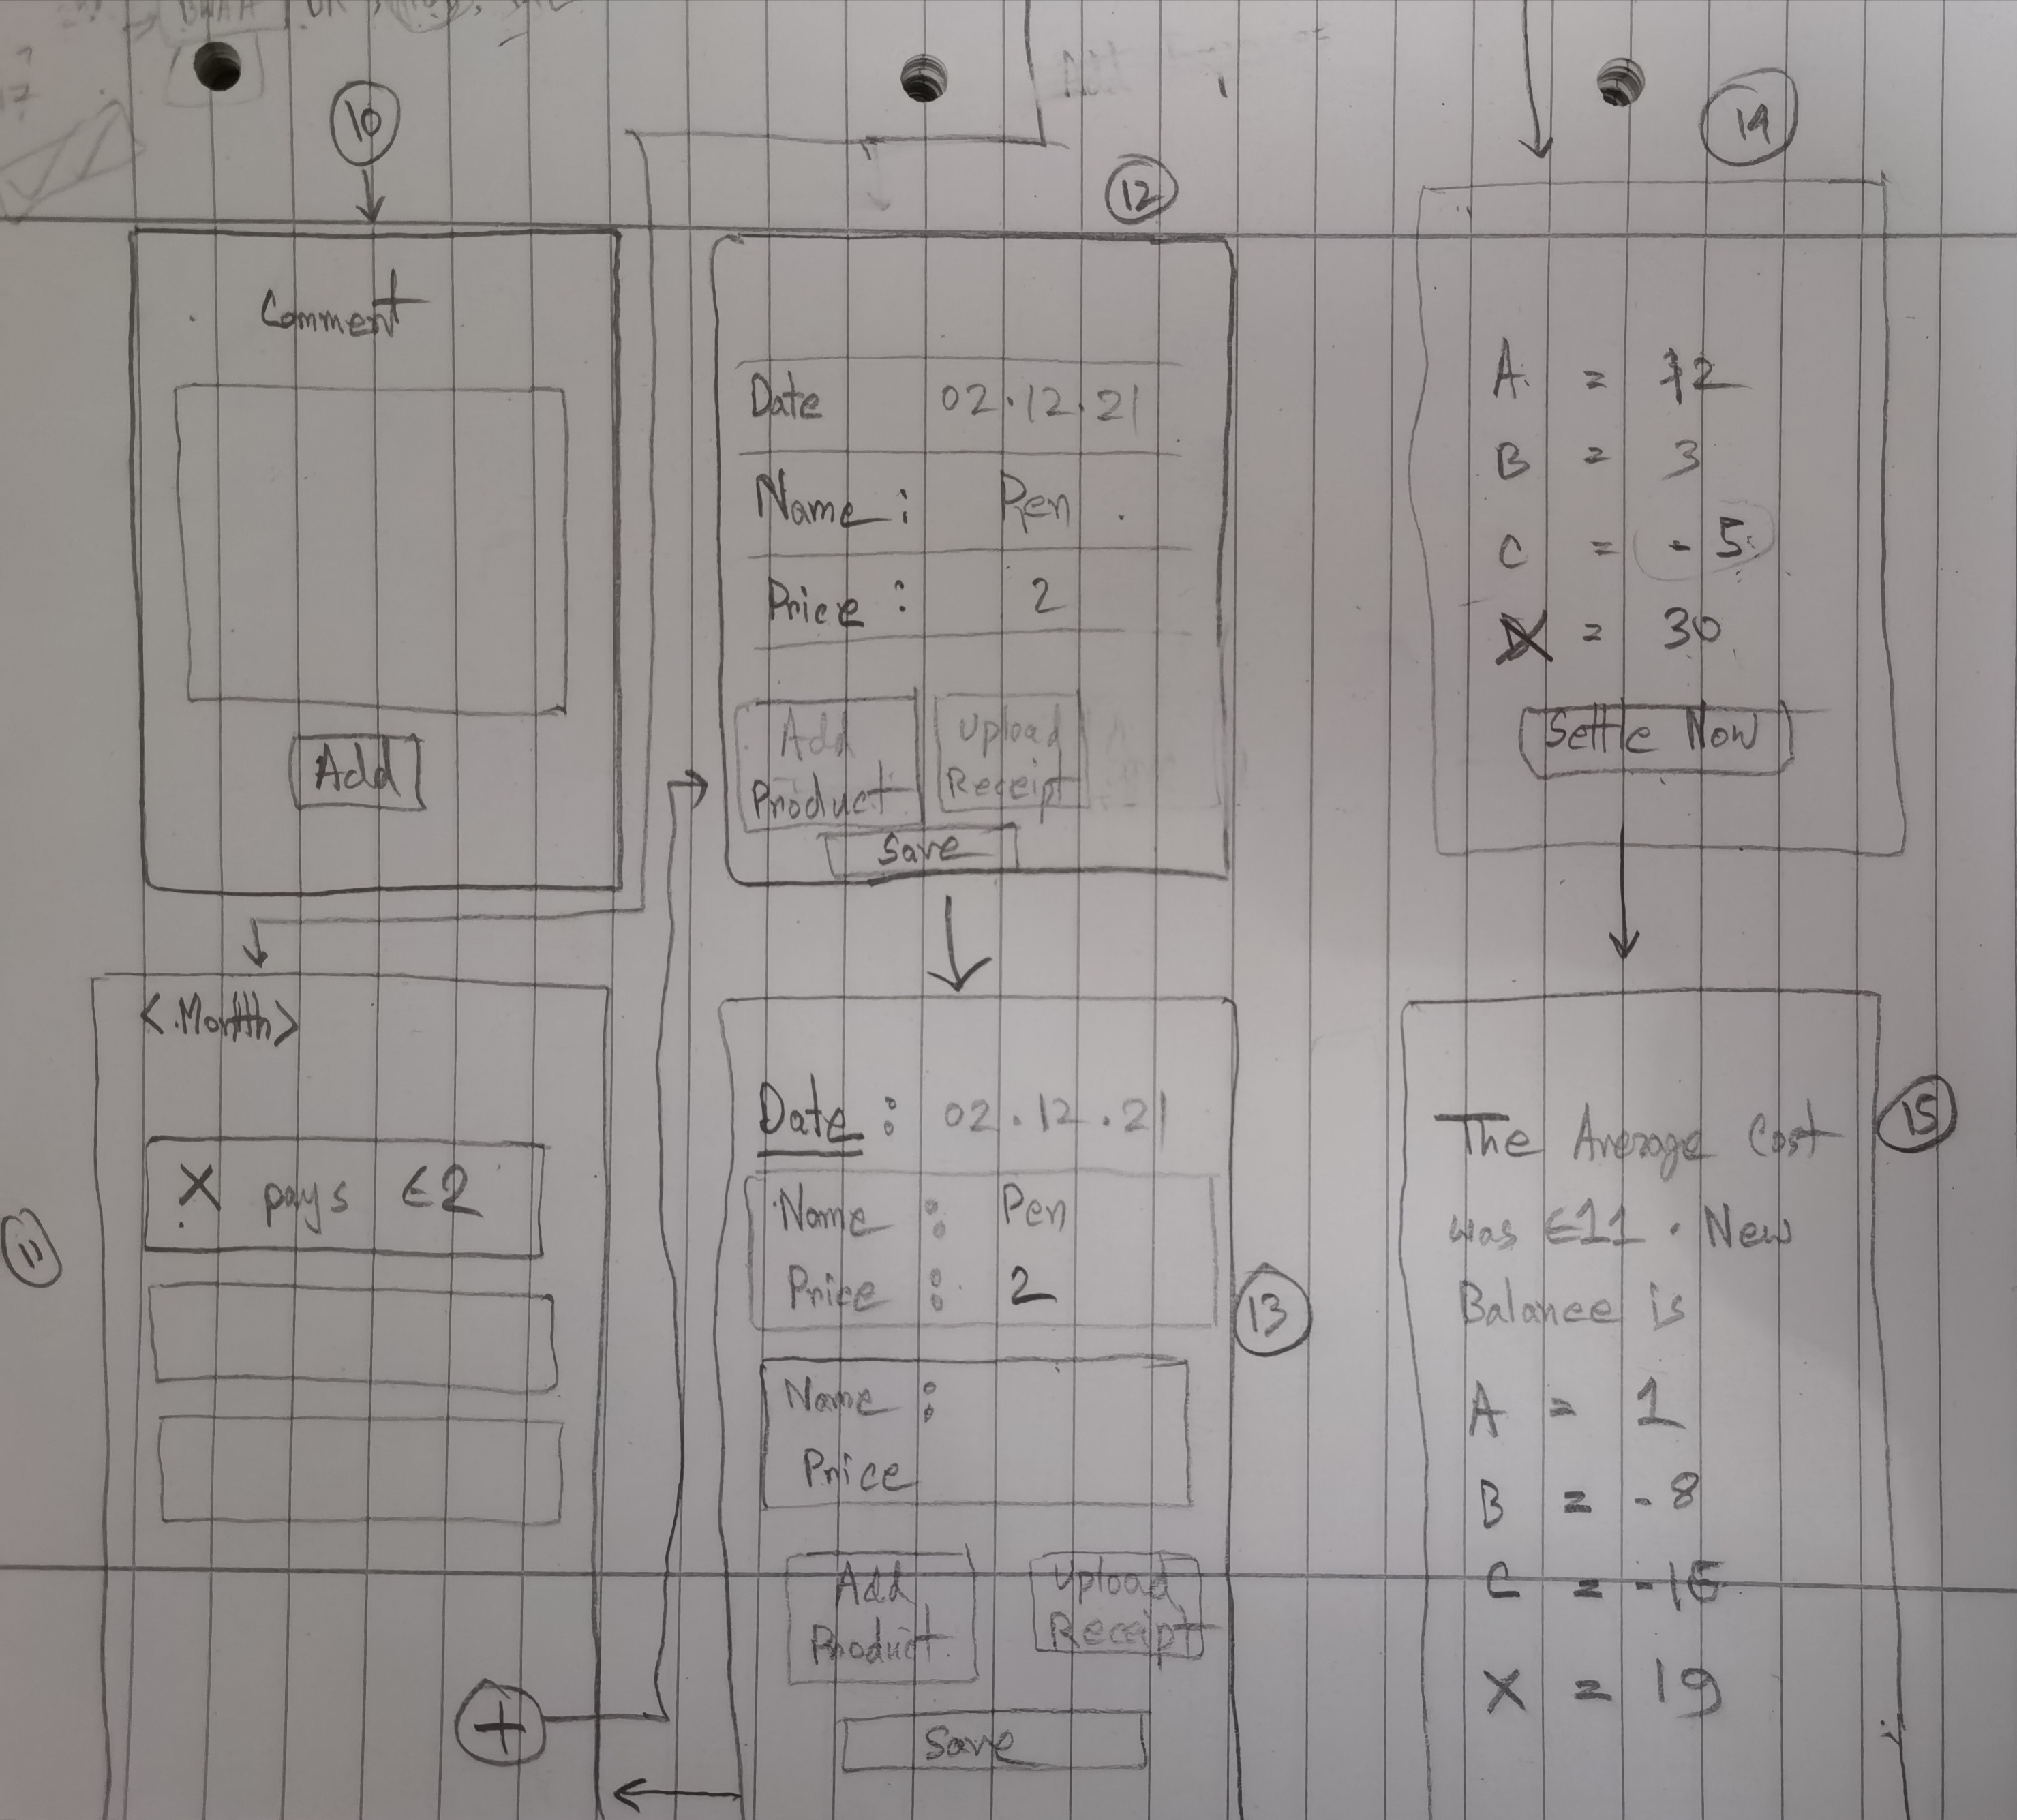 10
Comment
Add
<Month>
11
X pays €2
+
12
Date 02.12.21
Name : Pen
Price : 2
Add Product
Upload Receipt
Save
13
Date : 02.12.21
Name : Pen
Price : 2
Name :
Price
Add Product
Upload Receipt
Save
14
A = 12
B = 3
C = -5
X = 30
Settle Now
15
The Average Cost
was €11. New
Balance is
A = 1
B = -8
C = -16
X = 19